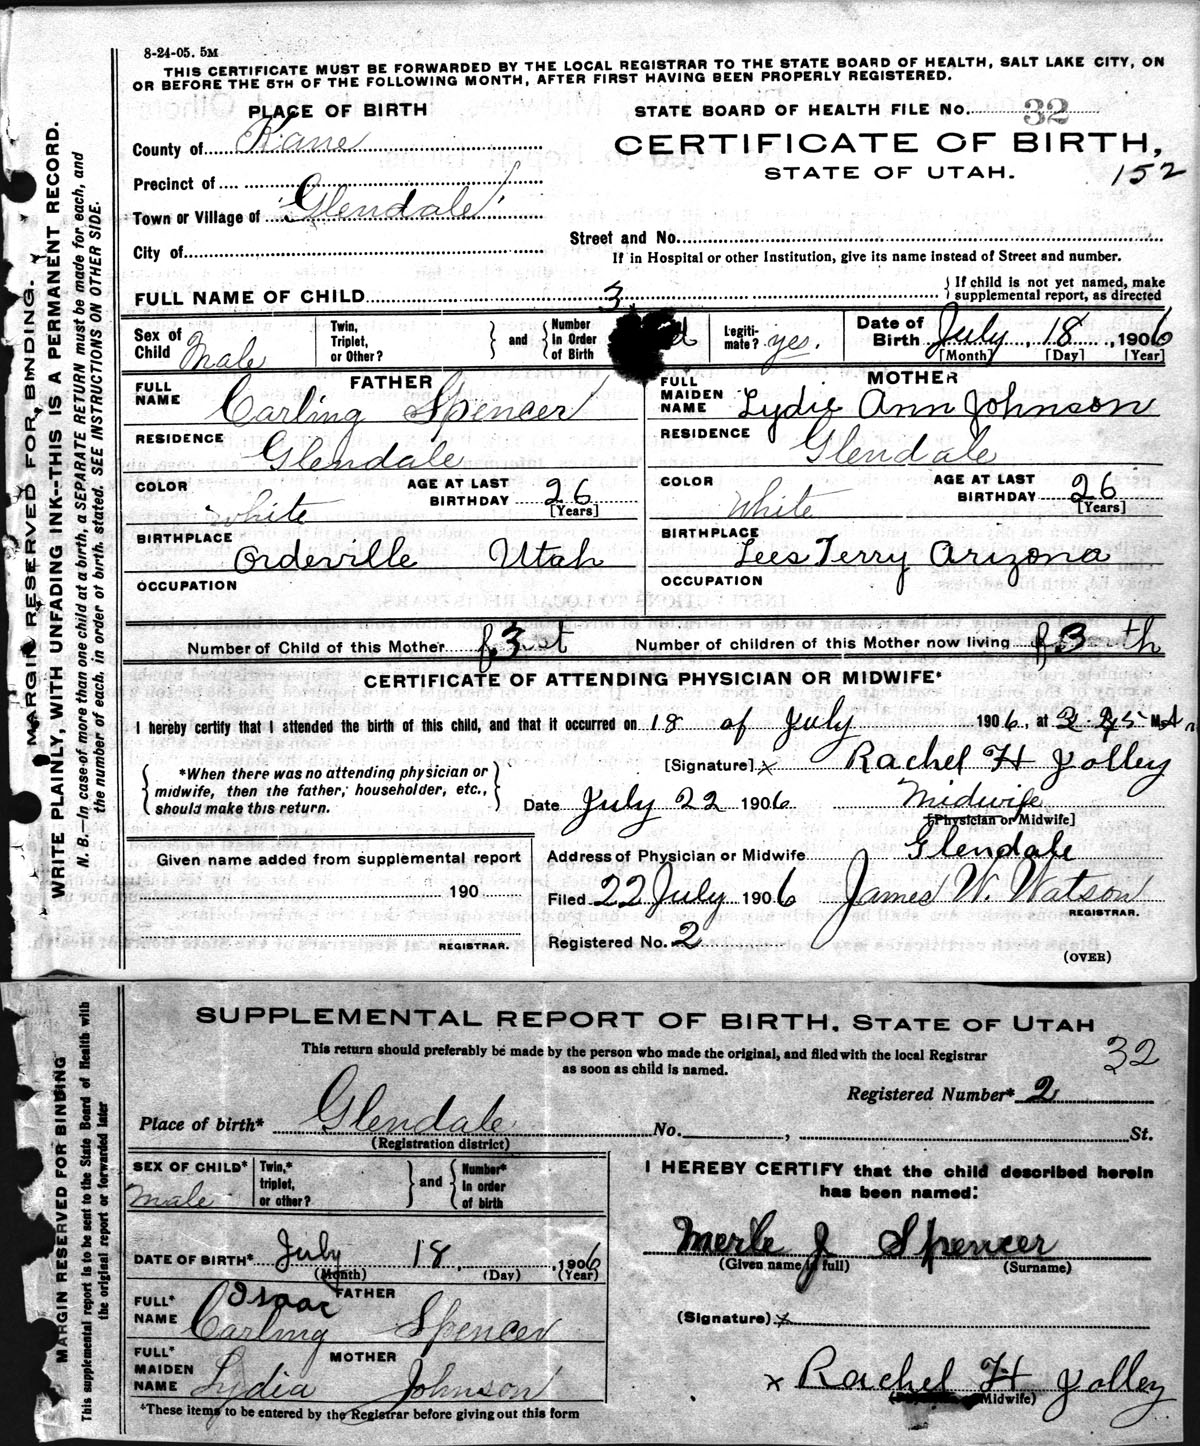 8-24-05. 5M
THIS CERTIFICATE MUST BE FORWARDED BY THE LOCAL REGISTRAR TO THE STATE BOARD OF HEALTH, SALT LAKE CITY, ON
OR BEFORE THE 5TH OF THE FOLLOWING MONTH, AFTER FIRST HAVING BEEN PROPERLY REGISTERED.
MARGIN RESERVED FOR BINDING.
WRITE PLAINLY, WITH UNFADING INK--THIS IS A PERMANENT RECORD.
N. B.—In case of more than one child at a birth, a SEPARATE RETURN must be made for each, and
the number of each, in order of birth, stated. SEE INSTRUCTIONS ON OTHER SIDE.
PLACE OF BIRTH
STATE BOARD OF HEALTH FILE NO. 32
County of Kane
CERTIFICATE OF BIRTH,
STATE OF UTAH.
152
Precinct of
Town or Village of Glendale
City of
Street and No.
If in Hospital or other Institution, give its name instead of Street and number.
FULL NAME OF CHILD
If child is not yet named, make
supplemental report, as directed
Sex of Child Male
Twin, Triplet, or Other?
and
Number In Order of Birth 3
Legitimate? yes.
Date of Birth July 18, 1906
[Month] [Day] [Year]
FATHER
FULL NAME Carling Spencer
RESIDENCE Glendale
COLOR white
AGE AT LAST BIRTHDAY 26
[Years]
BIRTHPLACE Ordeville Utah
OCCUPATION
MOTHER
FULL MAIDEN NAME Lydie Ann Johnson
RESIDENCE Glendale
COLOR White
AGE AT LAST BIRTHDAY 26
[Years]
BIRTHPLACE Lees Ferry Arizona
OCCUPATION
Number of Child of this Mother 3
Number of children of this Mother now living 3
CERTIFICATE OF ATTENDING PHYSICIAN OR MIDWIFE*
I hereby certify that I attended the birth of this child, and that it occurred on 18 of July 1906, at
[Signature] x Rachel H Jolley
*When there was no attending physician or
midwife, then the father, householder, etc.,
should make this return.
Date July 22 1906 Midwife
[Physician or Midwife]
Given name added from supplemental report
190
REGISTRAR.
Address of Physician or Midwife Glendale
Filed 22 July 1906 James W. Watson
REGISTRAR.
Registered No. 2
(OVER)
MARGIN RESERVED FOR BINDING
This supplemental report is to be sent to the State Board of Health with
the original report or forwarded later
SUPPLEMENTAL REPORT OF BIRTH, STATE OF UTAH
This return should preferably be made by the person who made the original, and filed with the local Registrar
as soon as child is named.
32
Registered Number* 2
Place of birth* Glendale No. , St.
(Registration district)
SEX OF CHILD* Male
Twin,* triplet, or other?
and
Number* In order of birth
DATE OF BIRTH* July 18, 1906
(Month) (Day) (Year)
FATHER
FULL* NAME Isaac Carling Spencer
MOTHER
FULL* MAIDEN NAME Lydia Johnson
*These items to be entered by the Registrar before giving out this form
I HEREBY CERTIFY that the child described herein
has been named:
Merle J Spencer
(Given name in full) (Surname)
(Signature) x
x Rachel H Jolley
Midwife)